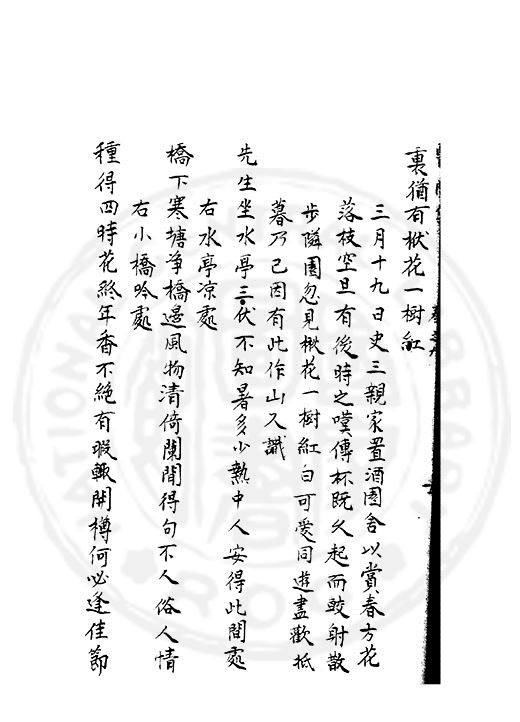 裏猶有楸花一樹紅
三月十九日史三親家置酒園舍以賞春方花
落枝空且有後時之嘆傳杯既久起而較射散
步隣園忽見楸花一樹紅白可愛同遊盡歡抵
暮乃已因有此作山人識
先生坐水亭三伏不知暑多少熱中人安得此間處
右水亭凉處
橋下寒塘净橋邉風物清倚闌閒得句不入俗人情
右小橋吟處
種得四時花終年香不絶有暇輙開樽何必逢佳節